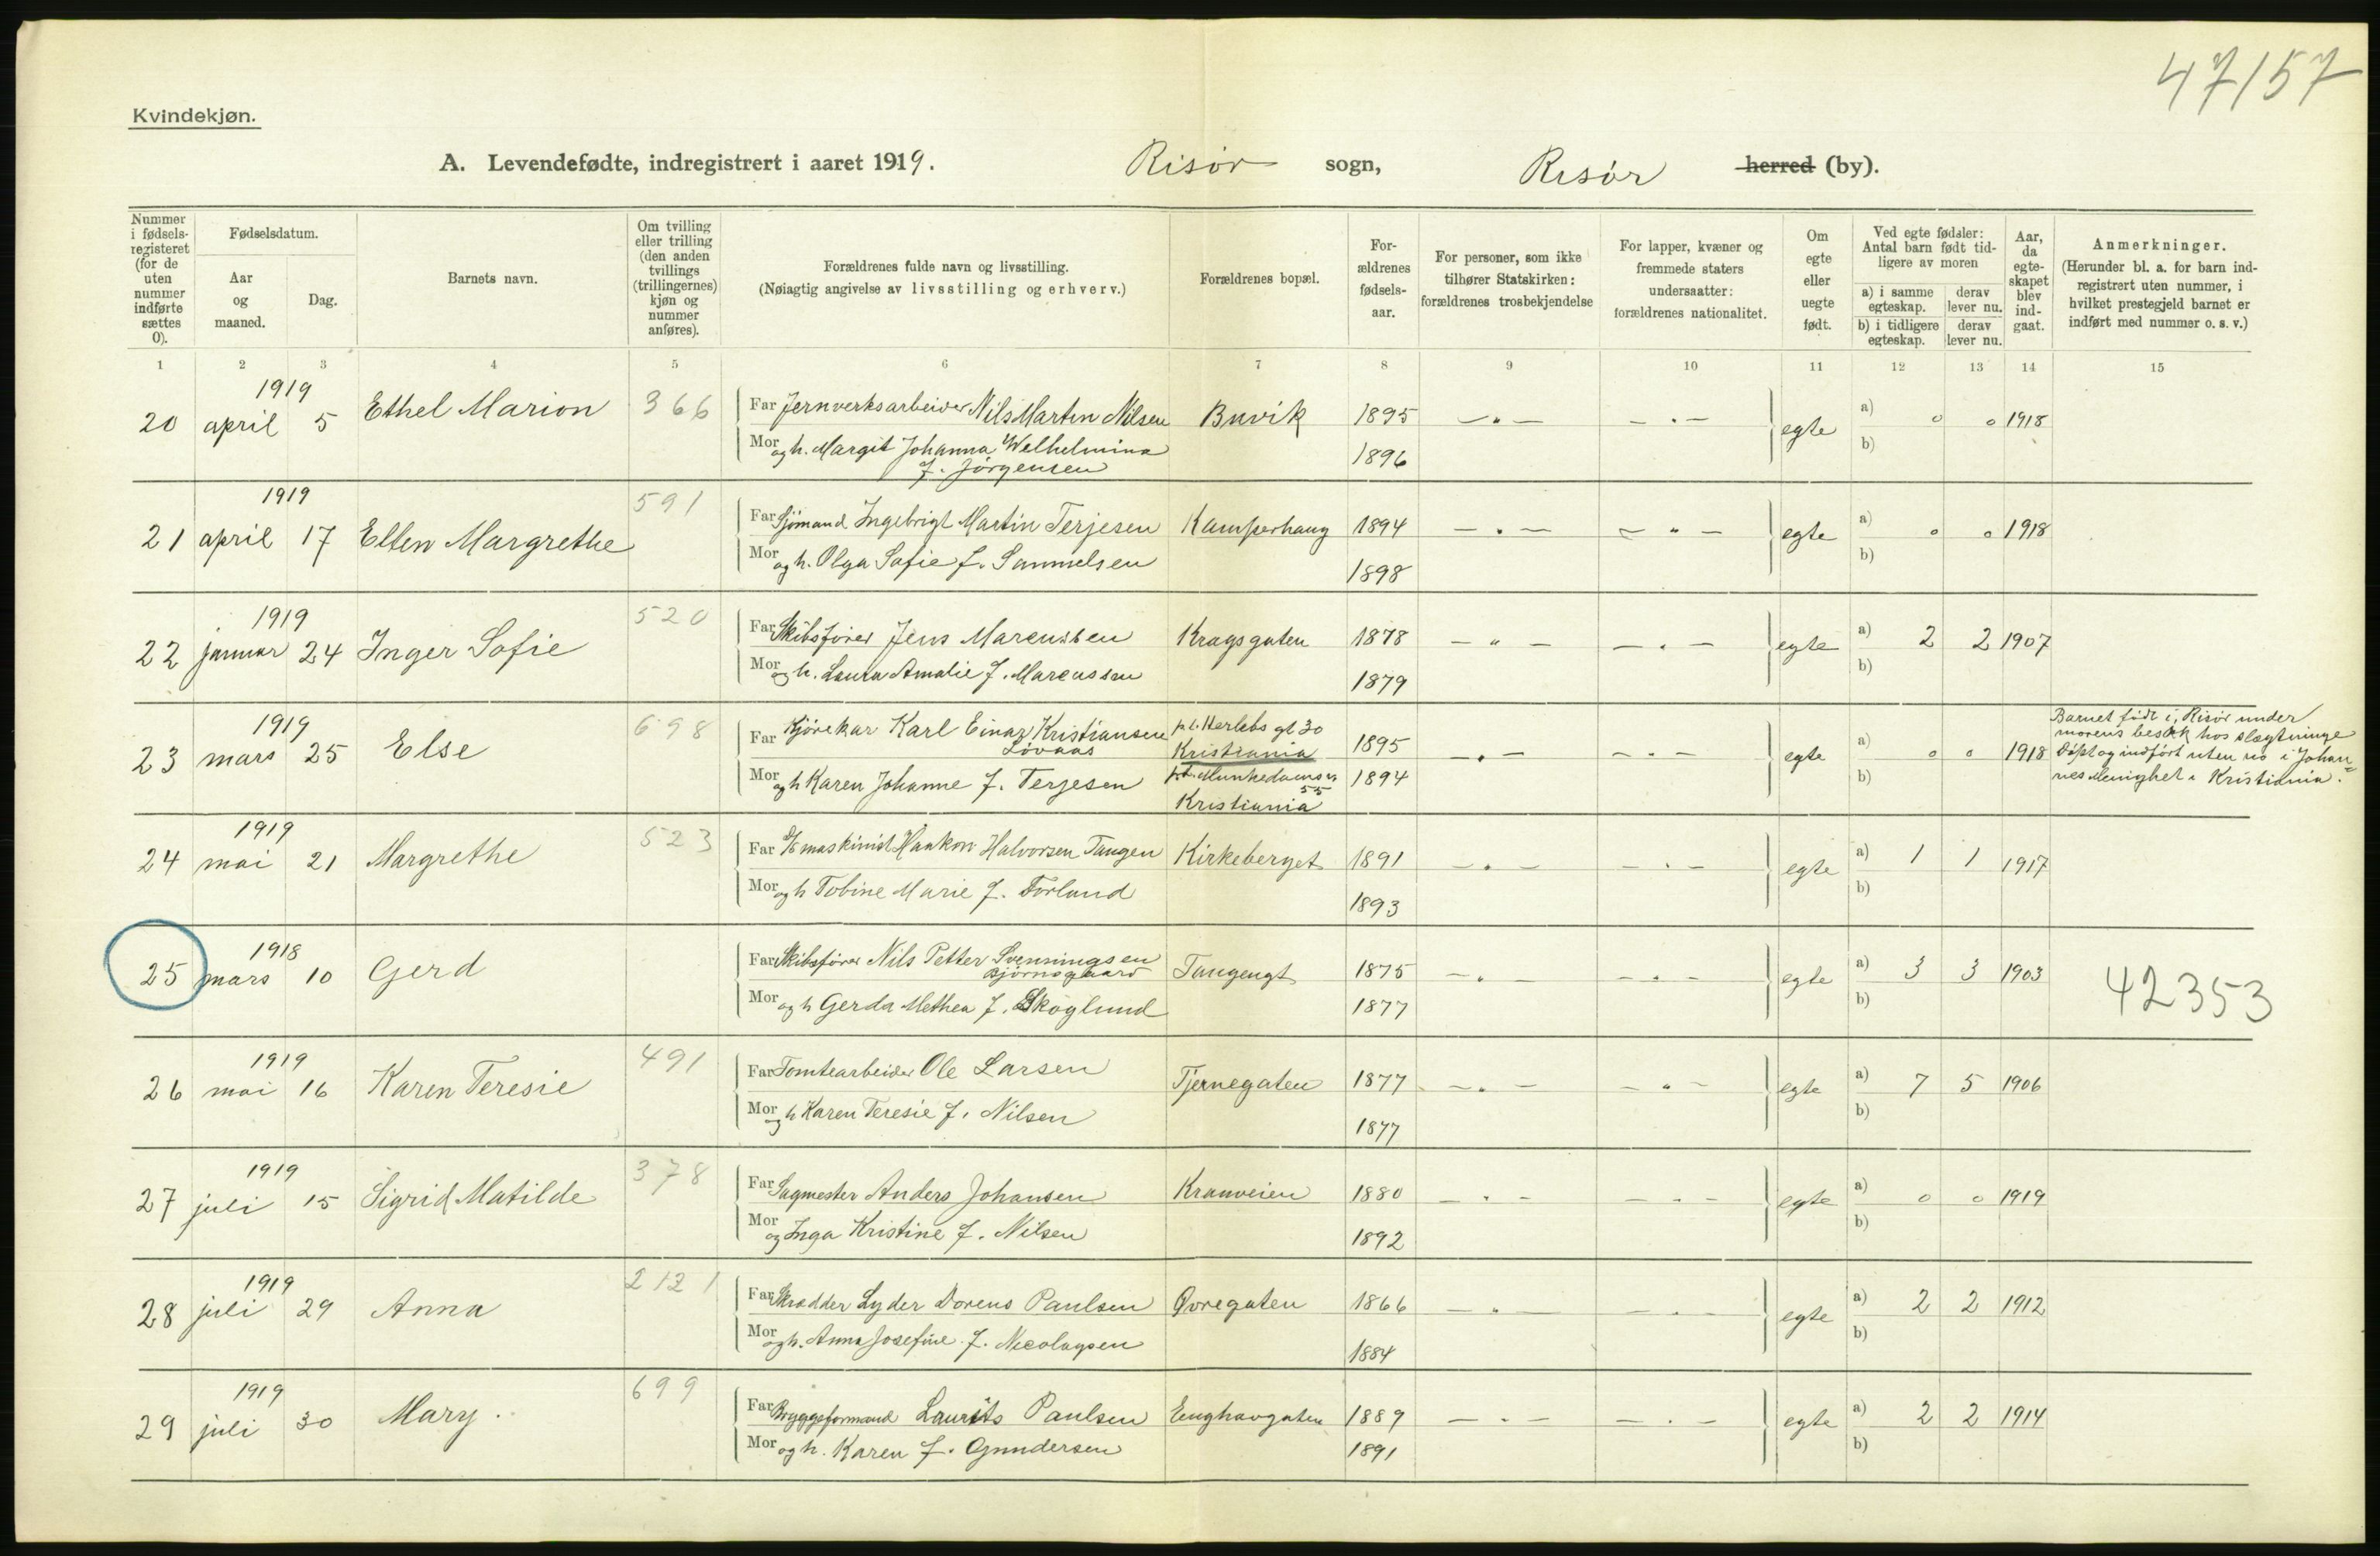 47/57
Kvindekjøn.
A. Levendefødte, indregistrert i aaret 1919. Risør sogn, Risør herred (by).
Nummer i fødsels-registeret (for de uten nummer indførte sættes 0).
Fødselsdatum.
Aar og maaned.
Dag.
Barnets navn.
Om tvilling eller trilling (den anden tvillings (trillingernes) kjøn og nummer anføres).
Forældrenes fulde navn og livsstilling.
(Nøiagtig angivelse av livsstilling og erhverv.)
Forældrenes bopæl.
For-ældrenes fødsels-aar.
For personer, som ikke tilhører Statskirken: forældrenes trosbekjendelse
For lapper, kvæner og fremmede staters undersaatter: forældrenes nationalitet.
Om egte eller uegte født.
Ved egte fødsler: Antal barn født tid-ligere av moren
a) i samme egteskap. derav lever nu.
b) i tidligere egteskap. derav lever nu.
Aar, da egte-skapet blev ind-gaat.
Anmerkninger.
(Herunder bl. a. for barn ind-registrert uten nummer, i hvilket prestegjeld barnet er indført med nummer o. s. v.)
1 2 3 4 5 6 7 8 9 10 11 12 13 14 15
1919
20 april 5 Ethel Marion 366 Far Jernverksarbeider Nils Martin Nilsen Buvik 1895 — " — — " — egte a) 0 0 1918
Mor og h. Margit Johanna Welhelmina 1896 b)
f. Jørgensen
1919
21 april 17 Ellen Margrethe 591 Far Sjømand Ingebrigt Martin Terjesen Kamperhaug 1894 — " — — " — egte a) 0 0 1918
Mor og h. Olga Sofie f. Samuelsen 1898 b)
1919
22 januar 24 Inger Sofie 520 Far Skibsfører Jens Marcussen Kragsgaten 1878 — " — — " — egte a) 2 2 1907
Mor og h. Laura Amalie f. Marcussen 1879 b)
1919
23 mars 25 Else 698 Far Kjørekar Karl Einar Kristiansen Løvaas p.t. Herlebs gt 30 Kristiania 1895 — " — — " — egte a) 0 0 1918
Mor og h Karen Johanne f. Terjesen p.t. Munkedamsv 55 Kristiania 1894 b)
Barnet født i Risør under
morens besøk hos slægtninge
Døpt og indført uten no i Johan=
nes Menighet i Kristiania.
1919
24 mai 21 Margrethe 523 Far D/S maskinist Haakon Halvorsen Tangen Kirkeberget 1891 — " — — " — egte a) 1 1 1917
Mor og h Tobine Marie f. Forland 1893 b)
1918
25 mars 10 Gerd Far Skibsfører Nils Petter Svenningsen Bjørnsgaard Tangengt 1875 — " — — " — egte a) 3 3 1903 42353
Mor og h Gerda Methea f. Skoglund 1877 b)
1919
26 mai 16 Karen Teresie 491 Far Tomtearbeider Ole Larsen Tjernegaten 1877 — " — — " — egte a) 7 5 1906
Mor og h Karen Teresie f. Nilsen 1877 b)
1919
27 juli 15 Sigrid Matilde 378 Far Sagmester Anders Johansen Kranveien 1880 — " — — " — egte a) 0 0 1919
Mor og Inga Kristine f. Nilsen 1892 b)
1919
28 juli 29 Anna 2121 Far Skrædder Lyder Dorens Paulsen Øvregaten 1866 — " — — " — egte a) 2 2 1912
Mor og h. Anna Josefine f. Nicolaysen 1884 b)
1919
29 juli 30 Mary. 699 Far Bryggeformand Laurits Paulsen Enghavgaten 1889 — " — — " — egte a) 2 2 1914
Mor og h. Karen f. Gundersen 1891 b)